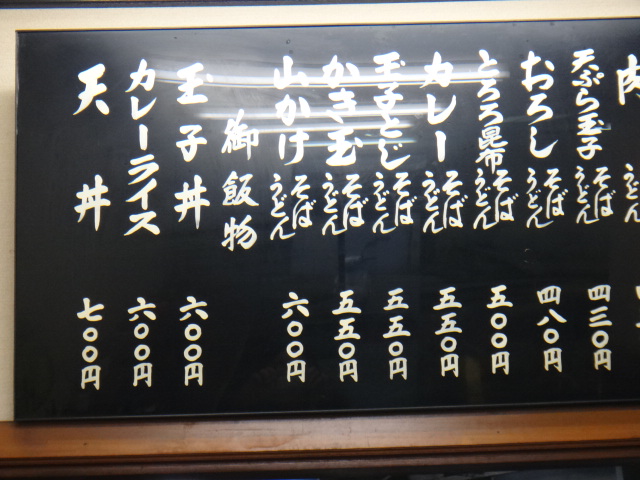 肉
天ぷら玉子 そば うどん 四三〇円
おろし そば うどん 四八〇円
とろろ昆布 そば うどん 五〇〇円
カレー そば うどん 五五〇円
玉子とじ そば うどん 五五〇円
かき玉 そば うどん 五五〇円
山かけ そば うどん 六〇〇円
御飯物
玉子丼 六〇〇円
カレーライス 六〇〇円
天丼 七〇〇円